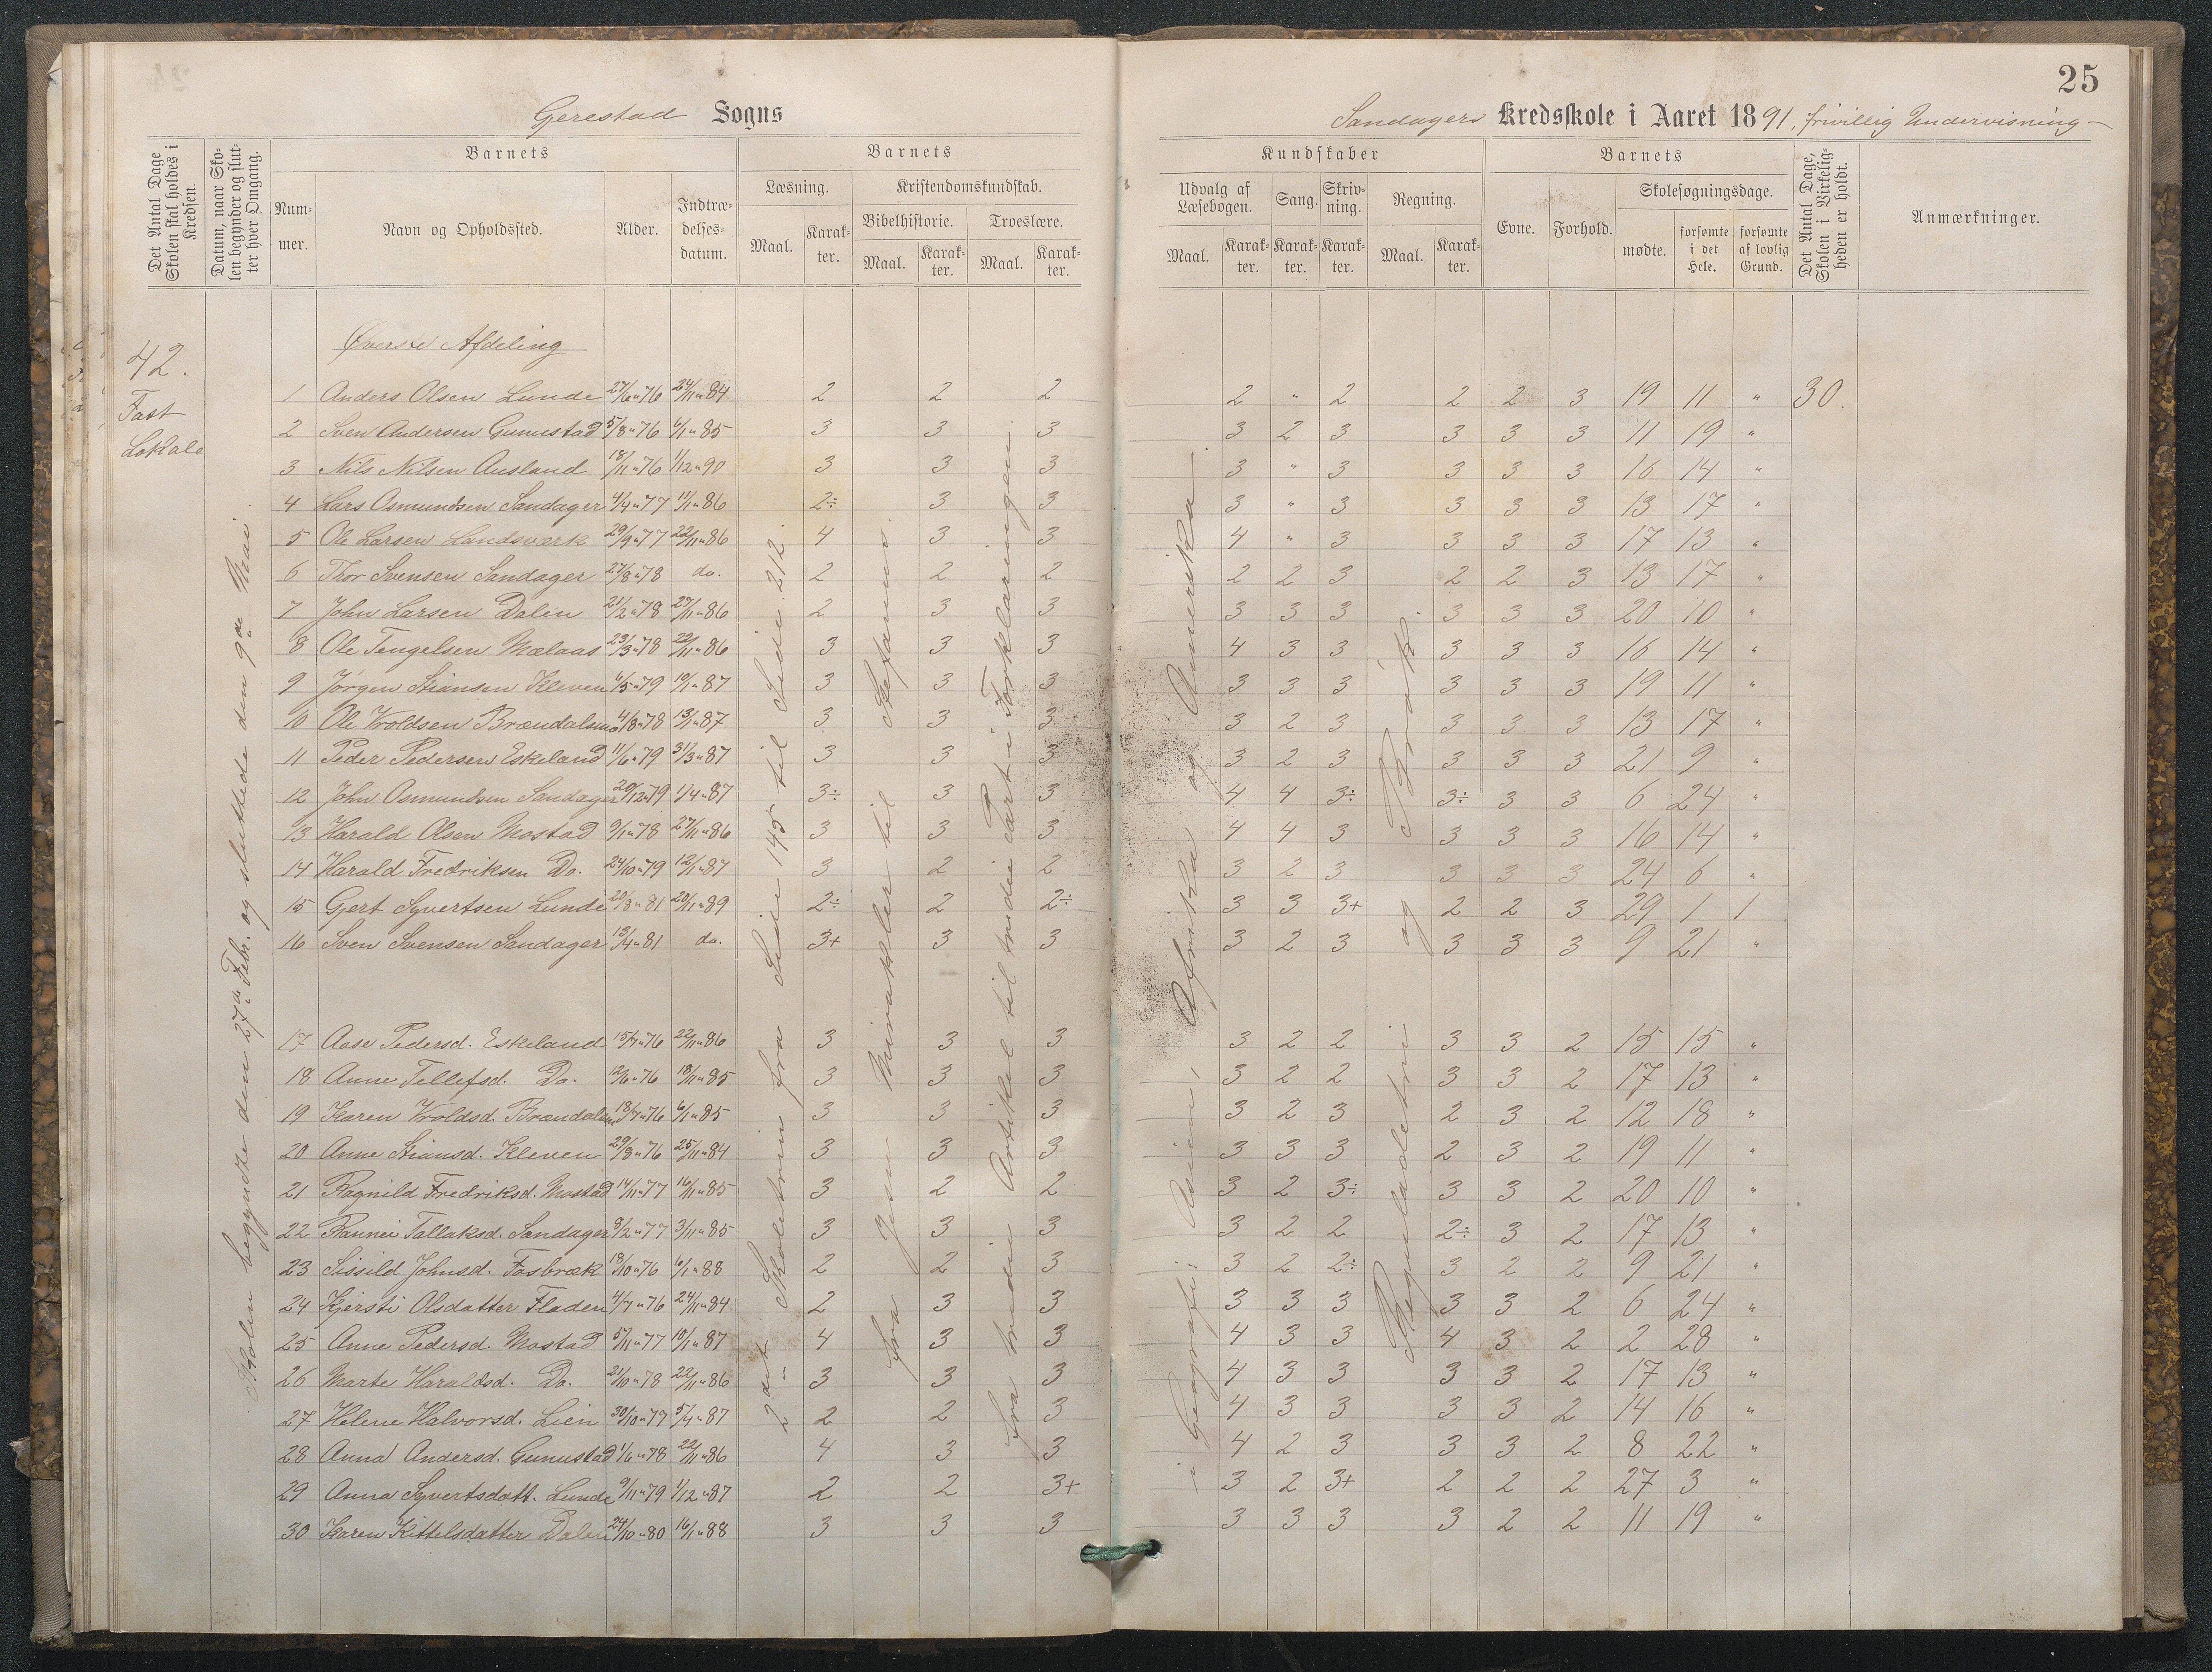 25
Gerestad Sogns
Sandagers Kredsskole i Aaret 1891, frivillig Undervisning –
Det Antal Dage Skolen skal holdes i Kredsen.
Datum, naar Skolen begynder og slutter hver Omgang.
Barnets
Nummer.
Navn og Opholdssted.
Alder.
Indtrædelsesdatum.
Barnets
Læsning.
Maal.
Karakter.
Kristendomskundskab.
Bibelhistorie.
Maal.
Karakter.
Troeslære.
Maal.
Karakter.
Kundskaber
Udvalg af Læsebogen.
Maal.
Karakter.
Sang.
Karakter.
Skrivning.
Karakter.
Regning.
Maal.
Karakter.
Barnets
Evne.
Forhold.
Skolesøgningsdage.
mødte.
forsømte i det Hele.
forsømte af lovlig Grund.
Det Antal Dage, Skolen i Virkeligheden er holdt.
Anmærkninger.
42.
Fast
Lokale
Skolen begyndte den 27de Febr. og sluttede den 9de Mai.
Øverste Afdeling
2det Skoletrin fra Side 145 til Side 212.
fra Jesu Mirakler til Stefanus.
fra tredie Artikel til tredie Part i Forklaringen.
i Geografi: Asien, Afrika og Amerika.
Reguladetri og Praktik.
1 Anders Olsen Lunde 27/6"76 24/11"84 2 2 2 2 " 2 2 2 3 19 11 " 30.
2 Sven Andersen Gunnestad 5/8"76 6/1"85 3 3 3 3 2 3 3 3 3 11 19 "
3 Nils Nilsen Ausland 18/11"76 1/12"90 3 3 3 3 " 3 3 3 3 16 14 "
4 Lars Osmundsen Sandager 4/4"77 11/1"86 2÷ 3 3 3 " 3 3 3 3 13 17 "
5 Ole Larsen Landsværk 29/9"77 22/11"86 4 3 3 4 " 3 3 3 3 17 13 "
6 Thor Svensen Sandager 27/8"78 do. 2 2 2 2 2 3 2 2 3 13 17 "
7 John Larsen Dalen 21/2"78 27/11"86 2 3 3 3 3 3 3 3 3 20 10 "
8 Ole Tengelsen Mælaas 23/3"78 22/11"86 3 3 3 4 3 3 3 3 3 16 14 "
9 Jørgen Stiansen Kleven 6/5"79 10/1"87 3 3 3 3 3 3 3 3 3 19 11 "
10 Ole Vroldsen Brændalsmo 4/8"78 13/1"87 3 3 3 3 2 3 3 3 3 13 17 "
11 Peder Pedersen Eskeland 11/6"79 31/3"87 3 3 3 3 2 3 3 3 3 21 9 "
12 John Osmundsen Sandager 20/12"79 1/4"87 3÷ 3 3 4 4 3÷ 3÷ 3 3 6 24 "
13 Harald Olsen Mostad 9/1"78 27/11"86 3 3 3 4 4 3 3 3 3 16 14 "
14 Harald Fredriksen Do. 24/10"79 12/1"87 3 2 2 3 2 3 3 3 3 24 6 "
15 Gjert Syvertsen Lunde 20/8"81 20/1"89 2÷ 2 2÷ 3 3 3+ 2 2 3 29 1 1
16 Sven Svensen Sandager 13/4"81 do. 3+ 3 3 3 2 3 3 3 3 9 21 "
17 Aase Pedersd. Eskeland 15/7"76 22/11"86 3 3 3 3 2 2 3 3 2 15 15 "
18 Anne Tellefsd. Do. 12/6"76 18/11"85 3 3 3 3 2 2 3 3 2 17 13 "
19 Karen Vroldsd. Brændalsmo 18/7"76 6/1"85 3 3 3 3 2 3 2 3 2 12 18 "
20 Anne Stiansd. Kleven 29/8"76 25/11"84 3 3 3 3 3 3 2 3 2 19 11 "
21 Ragnild Fredriksd. Mostad 14/11"77 16/11"85 3 2 2 3 2 3÷ 3 3 2 20 10 "
22 Rannei Tallaksd. Sandager 8/2"77 3/11"85 3 3 3 3 2 2 2÷ 3 2 17 13 "
23 Sissild Johnsd. Fosbræk 18/10"76 6/1"88 2 2 3 3 2 2÷ 3 2 2 9 21 "
24 Kjersti Olsdatter Fladen 4/7"76 24/11"84 2 3 3 3 3 3 3 3 2 6 24 "
25 Anne Pedersd. Mostad 5/11"77 10/1"87 4 3 3 4 3 3 4 3 2 2 28 "
26 Marte Haraldsd. Do. 21/10"78 22/11"86 3 3 3 4 3 3 3 3 2 17 13 "
27 Helene Halvorsd. Lien 30/10"77 5/4"87 2 2 3 4 3 3 3 3 2 14 16 "
28 Anna Andersd. Gunnestad 1/6"78 22/11"86 4 3 3 4 2 3 3 3 2 8 22 "
29 Anna Syvertsdatt. Lunde 9/11"79 1/12"87 2 2 3+ 3 2 3+ 2 2 2 27 3 "
30 Karen Kittelsdatter Dalen 24/10"80 16/1"88 3 3 3 3 3 3 3 2 2 11 19 "